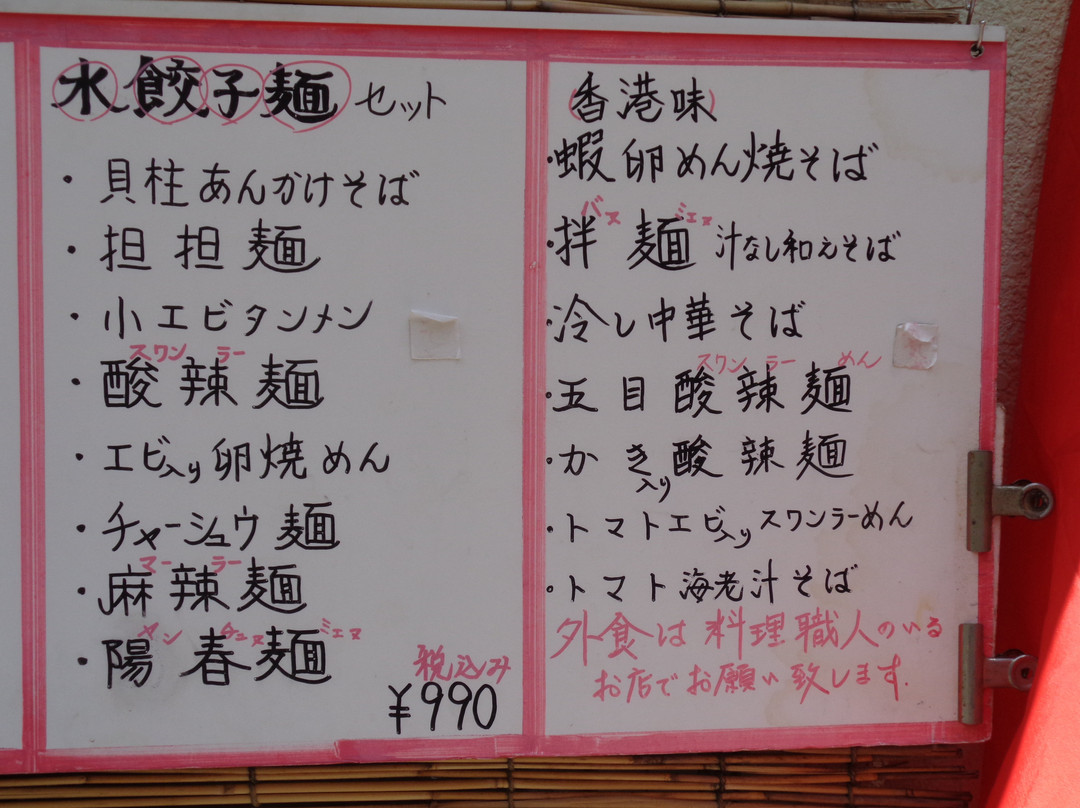 水餃子麺 セット
・貝柱あんかけそば
・担担麺
・小エビタンメン
スワン ラー
・酸辣麺
・エビ入り卵焼めん
・チャーシュウ麺
マー ラー
・麻辣麺
ヤン チュヌ ミェヌ
・陽春麺
税込み
¥990
(香港味)
・蝦卵めん焼そば
バヌ ミェヌ
・拌麺 汁なし和えそば
・冷し中華そば
スワン ラー めん
・五目酸辣麺
・かき入り酸辣麺
・トマトエビ入りスワンラーめん
・トマト海老汁そば
外食は料理職人のいる
お店でお願い致します.